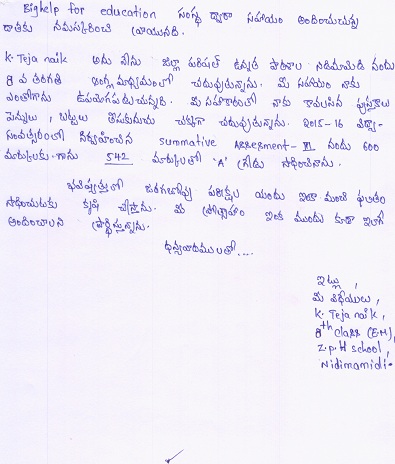 Bighelp for education సంస్థ ద్వారా సహాయం అందించుచున్న
దాతకు నమస్కరించి వ్రాయునది.
K. Teja naik అను నేను జిల్లా పరిషత్ ఉన్నత పాఠశాల నిడిమామిడి నందు
8 వ తరగతి ఆంగ్ల మాధ్యమంలో చదువుతున్నాను. మీ సహాయం నాకు
ఎంతోగాను ఉపయోగపడుచున్నది. మీ సహకారంతో నాకు కావలసిన పుస్తకాలు
పెన్నులు, బట్టలు తీసుకుని చక్కగా చదువుతున్నాను. 2015-16 విద్యా-
సంవత్సరంలో నిర్వహించిన summative Assessment-III నందు 600
మార్కులకు గాను 542 మార్కులతో 'A' గ్రేడు సాధించినాను.
భవిష్యత్తులో జరగబోవు పరీక్షల యందు ఇలా మంచి ఫలితం
సాధించుటకు కృషి చేస్తాను. మీ ప్రోత్సాహం ఇక ముందు కూడా ఇలాగే
అందించాలని ప్రార్థిస్తున్నాను.
ధన్యవాదములతో....
ఇట్లు,
మీ విధేయులు,
K. Teja naik,
8th class (E.M),
Z.P.H school,
Nidimamidi.